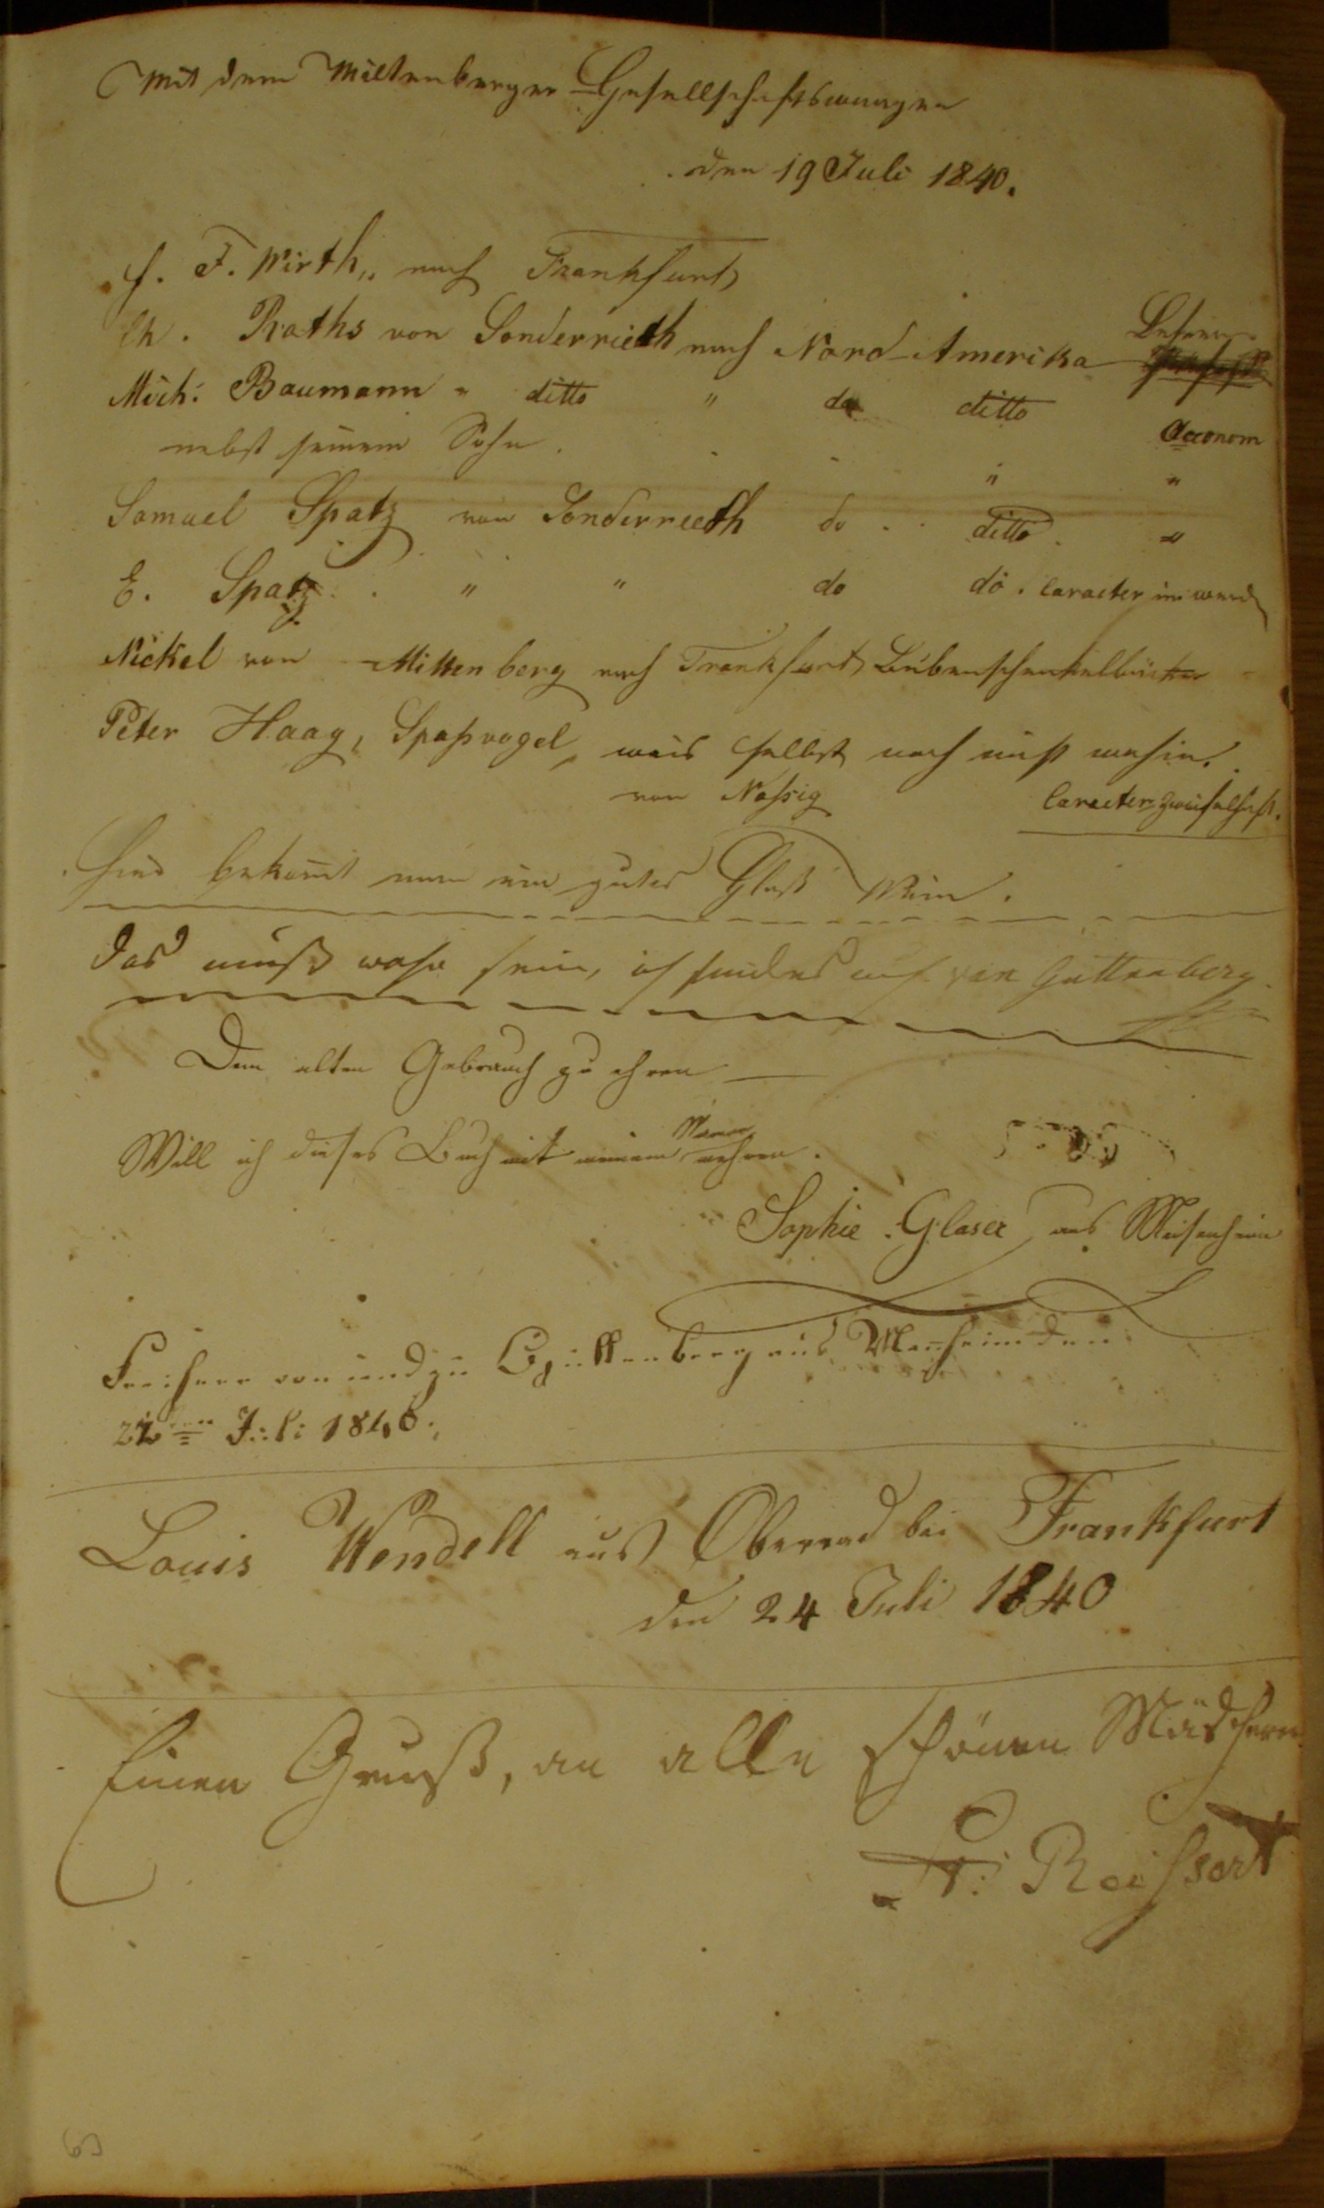 Mit dem Miltenberger Gesellschaftswagen
den 19 Juli 1840.
F. Wirth, nach Frankfurt
Raths von Sonderrieth nach Nord-Amerika
Mich: Baumann " ditto " do ditto Oeconom
nebst seinem Sohn . " "
Samuel Spatz von Sonderrieth do . ditto . "
E. Spatz . " " do do . Caracter
Nickel von Miltenberg nach Frankfurt
Peter Haag, Spaßvogel, weis selbst noch nicht wohin.
von Nassig Caracter zweifelhaft.
Hier bekomt man ein gutes Glaß Wein.
Das muß wahr sein, ich von Guttenberg
Dem alten Gebrauch zu ehren —
Will ich dieses Buch mit meinem Namen mehren.
Sophie Glaser aus Meisenheim
Freiherr von und zu aus Manheim den
Juli 1840.
Louis Wendell aus Oberrad bei Frankfurt
den 24 Juli 1840
Einen Gruß, an alle schönen Mädchen
Fr: Reissert
63